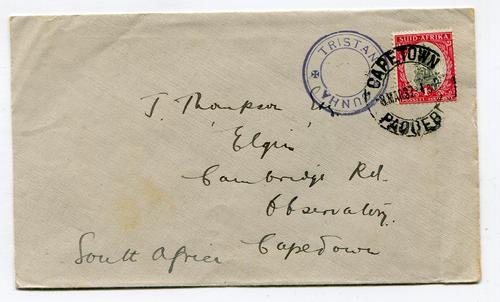 TRISTAN
CUNHA
SUID-AFRIKA
CAPETOWN
PAQUEBOT
J. Thompson
'Elgin'
Cambridge Rd.
Observatory.
South Africa Capetown